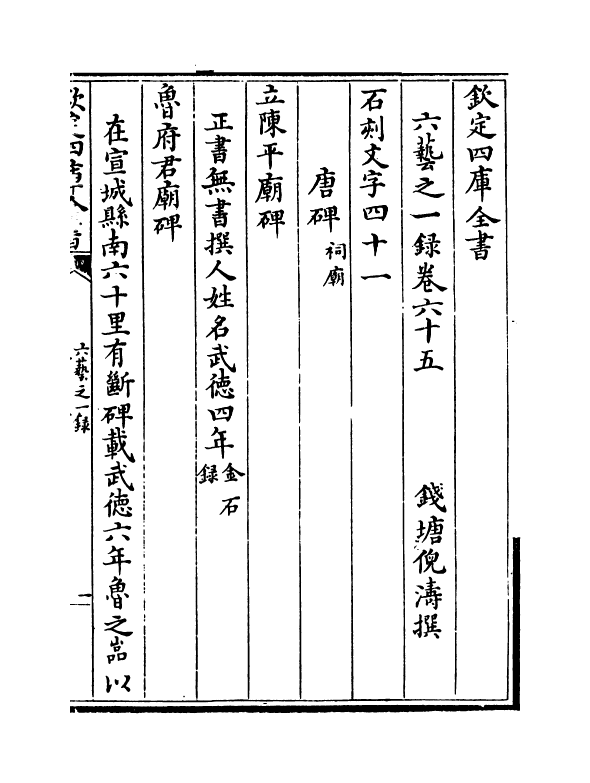 欽定四庫全書
六藝之一録卷六十五 錢塘倪濤撰
石刻文字四十一
唐碑祠廟
立陳平廟碑
正書無書撰人姓名武徳四年金石録
魯府君廟碑
在宣城縣南六十里有斷碑載武徳六年魯之嵓以
六藝之一録
一